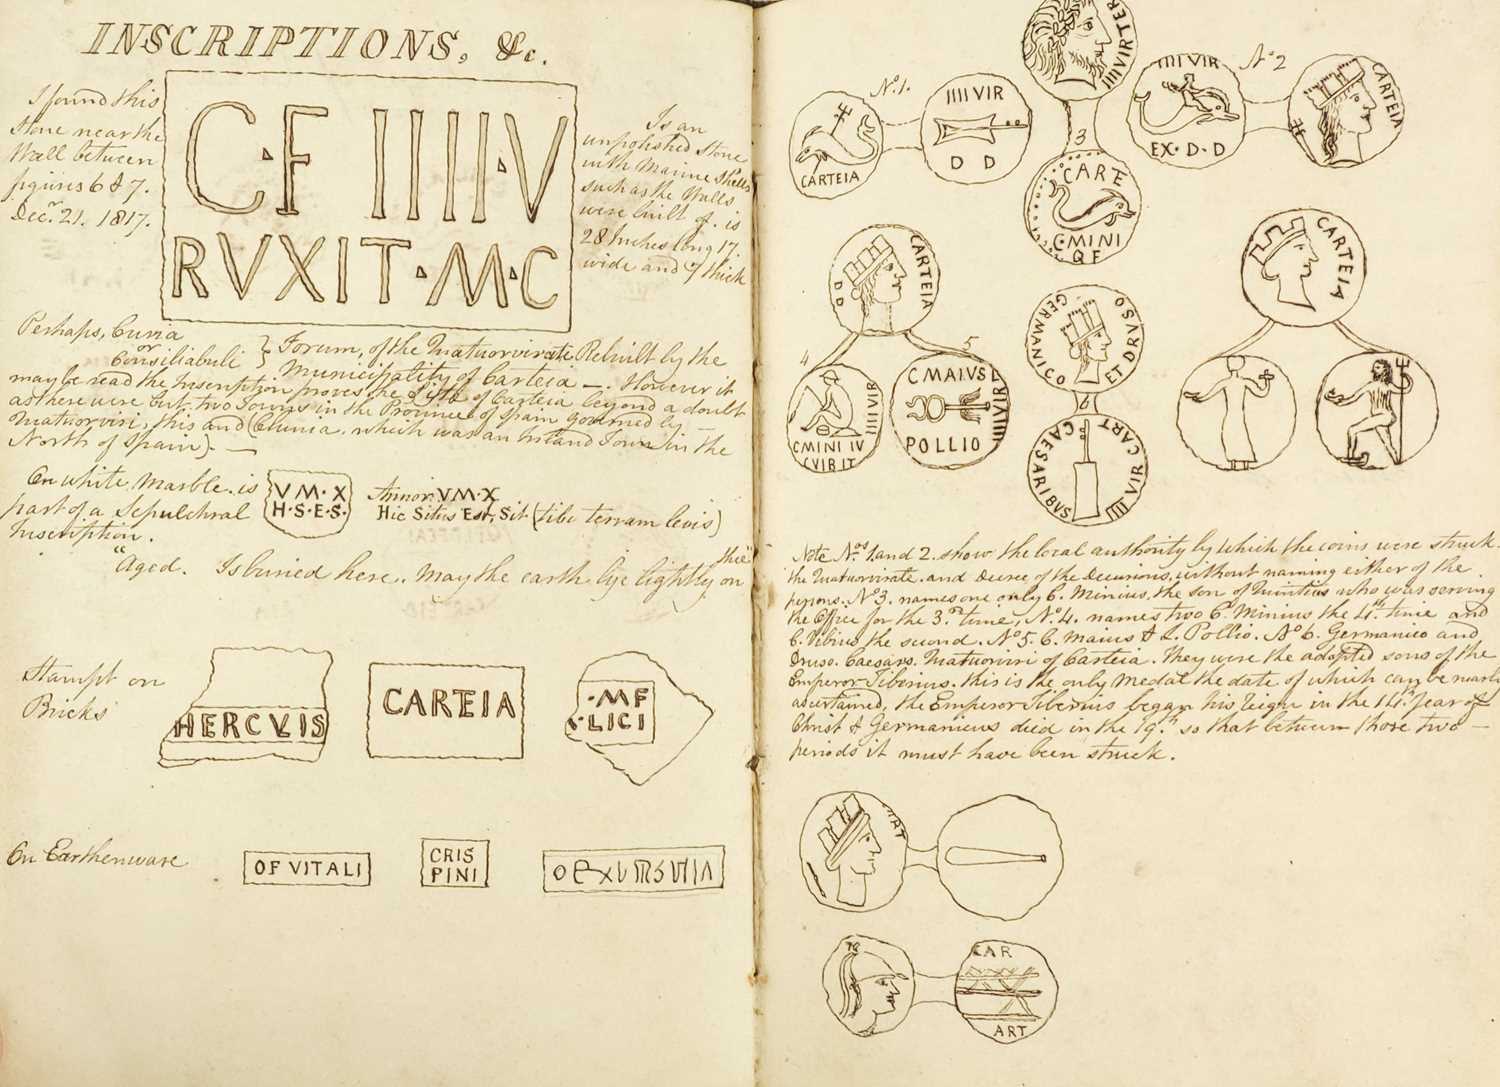 INSCRIPTIONS, &c.
I found this
stone near the
Wall between
figures 6 & 7.
Decr. 21. 1817.
C·F IIIII·V
RVXIT·M·C
Is an
unpolished stone
with Marine Shells
such as the Walls
were built of. is
28 Inches long 17
wide and 7 thick
Perhaps, Curia
or
Consiliabuli } Forum, of the Quatuorvirate Rebuilt by the
Municipality of Carteia —. However it
may be read the Inscription proves the Site of Carteia beyond a doubt
as there were but two Towns in the Province of Spain governed by
Quatuorviri, this and (Clunia. which was an Inland Town in the
North of Spain). —
On white Marble. is
part of a Sepulchral
Inscription.
VM·X
H·S·E·S·
Annor. VM·X
Hic Situs Est, Sit (tibi terram levis)
"Aged. Is buried here. May the earth lye lightly on thee"
Stampt on
Bricks
HERCVLIS
CARTEIA
·MF
·LICI
On Earthenware
OF VITALI
CRIS
PINI
No. 1.
CARTEIA
IIII VIR
D D
IIII VIR TER
3
CARTE
C·MINI
Q F
IIII VIR
EX·D·D
No 2
CARTEIA
CARTEIA
D D
4
C MINI IV
C VIB IT
IIII VIR
5
C MAIVS L
POLLIO
IIII VIR
GERMANICO ET DRVSO
6
CAESARIBVS IIII VIR CART
CARTEIA
Note Nos. 1. and 2. show the local authority by which the coins were struck.
the Quatuorvirate. and Decree of the Decurions, without naming either of the
persons. No 3. names one only C. Minius, the son of Quintus who was serving
the Office for the 3rd time, No. 4. names two C. Minius the 4th time and
C. Vibius the second. No 5. C. Maius & L. Pollio. No 6. Germanico and
Druso. Caesars. Quatuorviri of Carteia. They were the adopted sons of the
Emperor Tiberius. this is the only Medal the date of which can be nearly
ascertained, the Emperor Tiberius began his Reign in the 14th year of
Christ & Germanicus died in the 19th. so that between those two —
periods it must have been struck.
CAR
ART